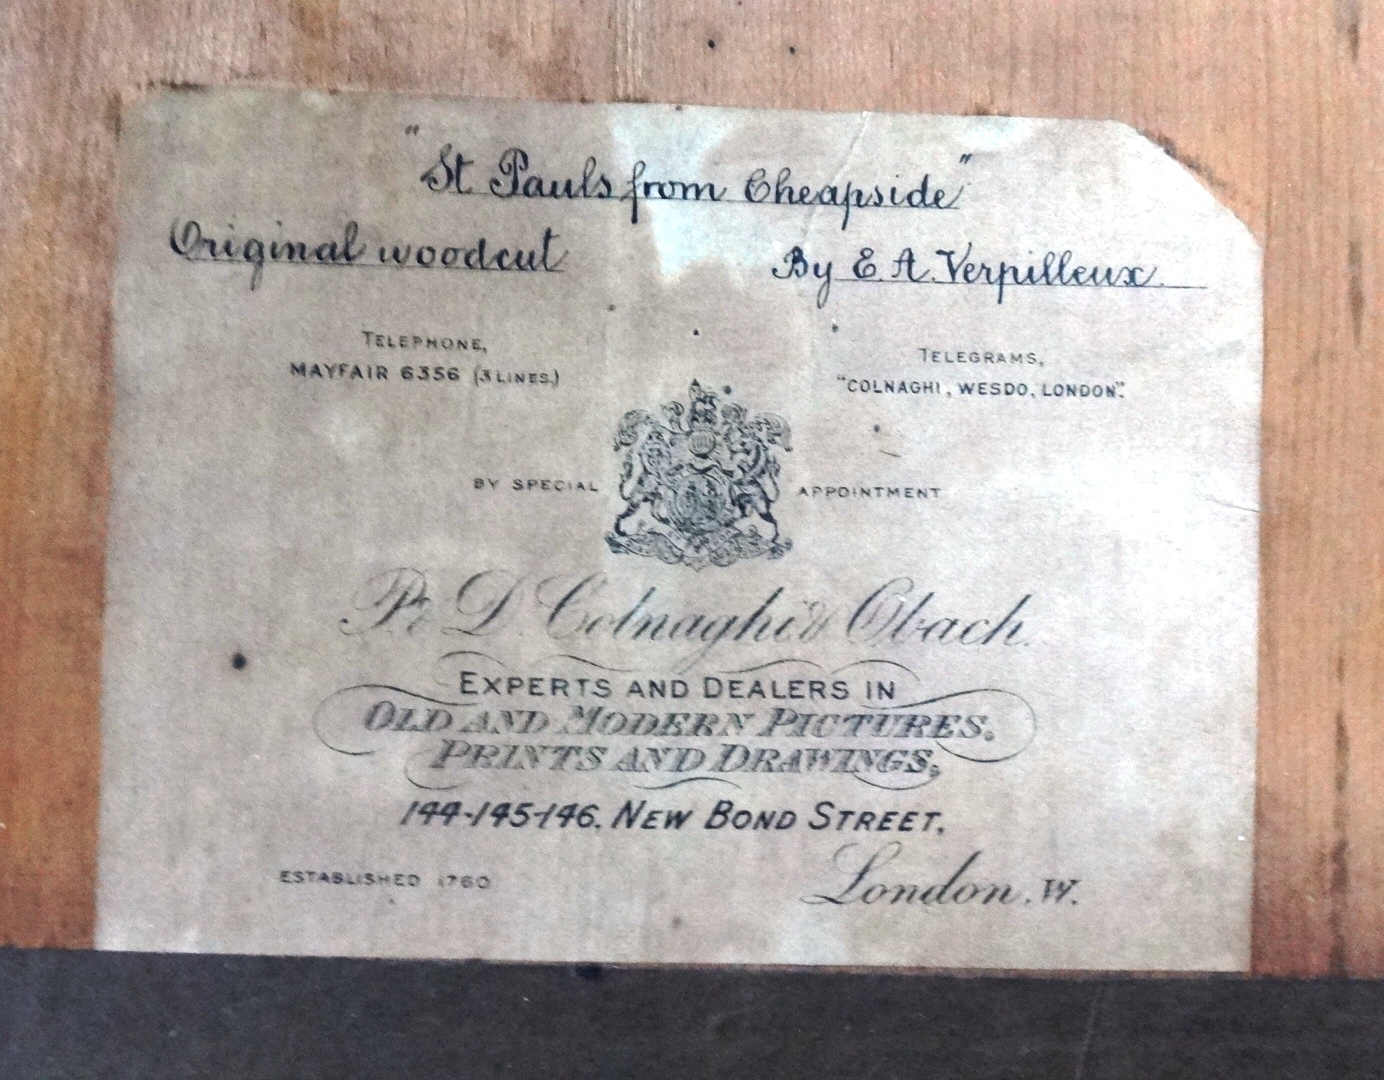 "St Pauls from Cheapside"
Original woodcut By E. A. Verpilleux.
TELEPHONE,
MAYFAIR 6356 (3 LINES.)
TELEGRAMS,
"COLNAGHI, WESDO, LONDON".
BY SPECIAL APPOINTMENT
P. & D. Colnaghi & Obach.
EXPERTS AND DEALERS IN
OLD AND MODERN PICTURES.
PRINTS AND DRAWINGS,
144-145-146, NEW BOND STREET,
ESTABLISHED 1760
London. W.